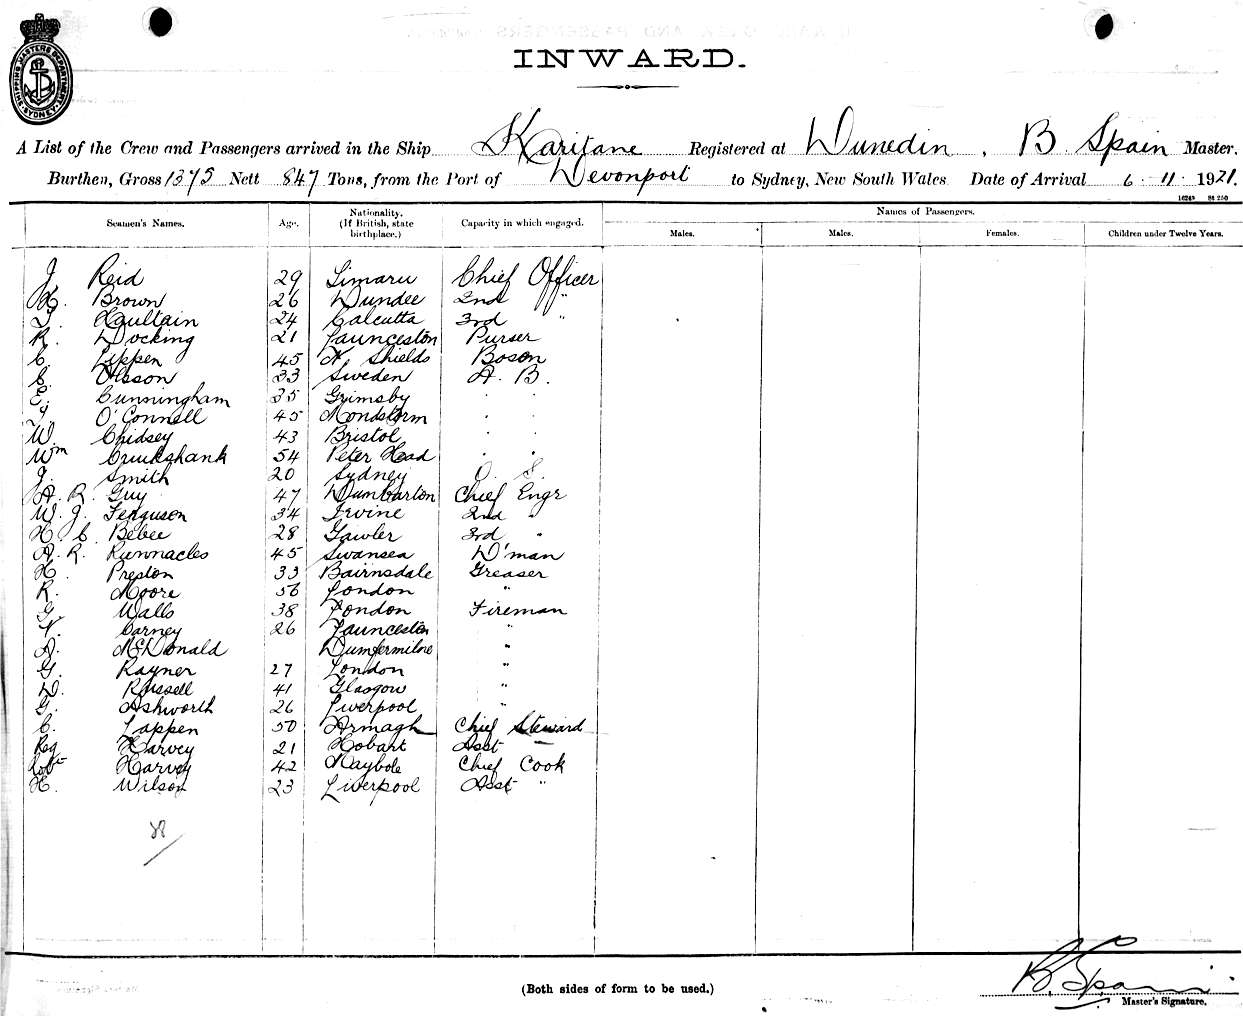 SHIPPING MASTERS DEPARTMENT SYDNEY
INWARD.
A List of the Crew and Passengers arrived in the Ship Karitane Registered at Dunedin, B. Spain Master,
Burthen, Gross 1375 Nett 847 Tons, from the Port of Devonport to Sydney, New South Wales Date of Arrival 6. 11. 1921.
Seamen's Names. Age. Nationality. (If British, state birthplace.) Capacity in which engaged. Names of Passengers.
Males. Males. Females. Children under Twelve Years.
J Reid 29 Timaru Chief Officer
Brown 26 Dundee 2nd "
Haultain 24 Calcutta 3rd "
R. Docking 21 Launceston Purser
C. Lippen 45 N Shields Boson
C. Olsson 33 Sweden A. B.
E. Cunningham 35 Grimsby " "
O'Connell 45 " "
W. Chidsey 43 Bristol " "
Wm Cruikshank 54 Peter Head " "
J. Smith 20 Sydney O. S.
A. R. Guy 47 Dumbarton Chief Engr
W. J. Ferguson 34 Irvine 2nd "
H. C. Bebee 28 Gawler 3rd "
A. R. Runnacles 45 Swansea D'man
H. Preston 33 Bairnsdale Greaser
R. Moore 56 London "
G. Walls 38 London Fireman
Carney 26 Launceston "
A. McDonald Dumfermilne "
G. Rayner 27 London "
D. Russell 41 Glasgow "
G. Ashworth 26 Liverpool "
C. Lappen 50 Armagh Chief Steward
Reg Harvey 21 Hobart Asst
Robt Harvey 42 Maybole Chief Cook
H. Wilson 23 Liverpool Asst "
(Both sides of form to be used.)
B. Spain
Master's Signature.